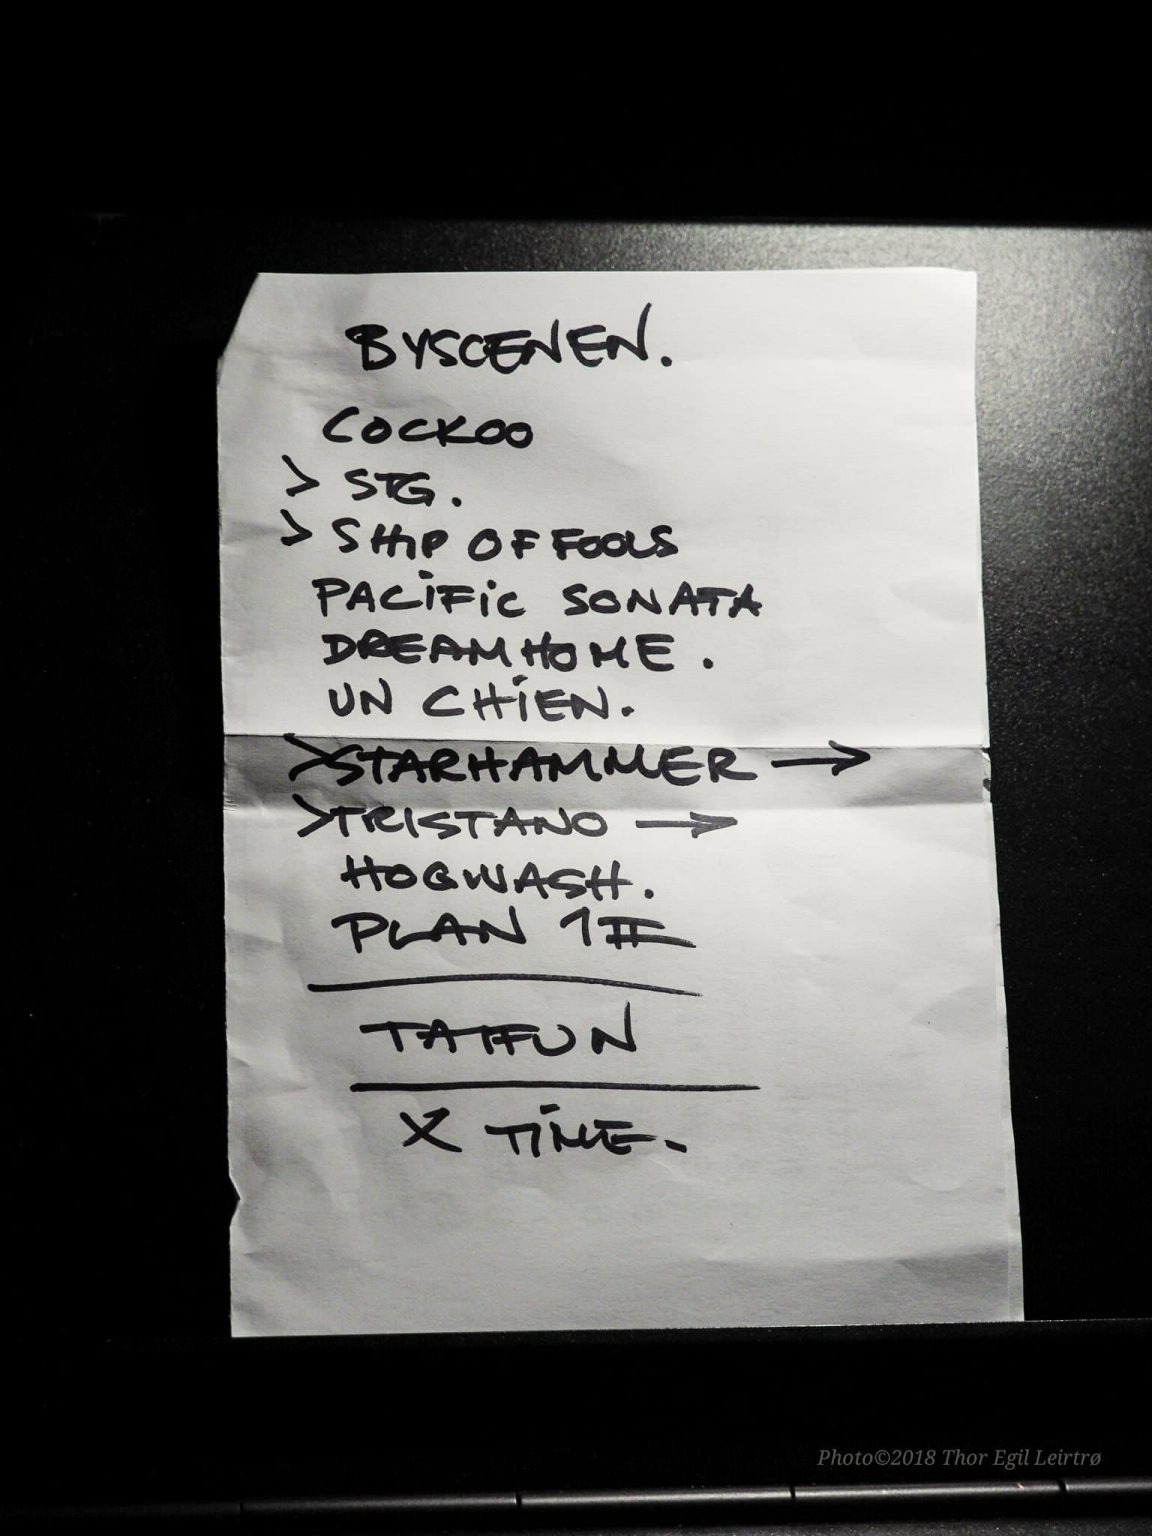 BYSCENEN.
COCKOO
> STG.
> SHIP OF FOOLS
PACIFIC SONATA
DREAMHOME.
UN CHIEN.
>STARHAMMER →
>TRISTANO →
HOGWASH.
PLAN 1#
TAIFUN
X TIME.
Photo©2018 Thor Egil Leirtrø